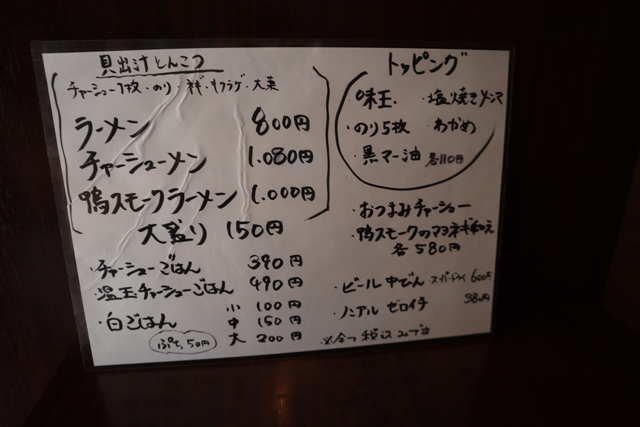 見出汁とんこつ
チャーシュー1枚・のり・ネギ・キクラゲ・大葉
ラーメン 800円
チャーシューメン 1.080円
鴨スモークラーメン 1.000円
大盛り 150円
・チャーシューごはん 390円
・温玉チャーシューごはん 490円
・白ごはん
小 100円
中 150円
大 200円
ぷち,50円
トッピング
・味玉 ・塩焼きメンマ
・のり5枚 ・わかめ
・黒マー油 各110円
・おつまみチャーシュー
・鴨スモークのマヨネギ和え
各580円
・ビール中びん スーパードライ 600円
・ノンアル ゼロイチ 380円
※全て税込みです